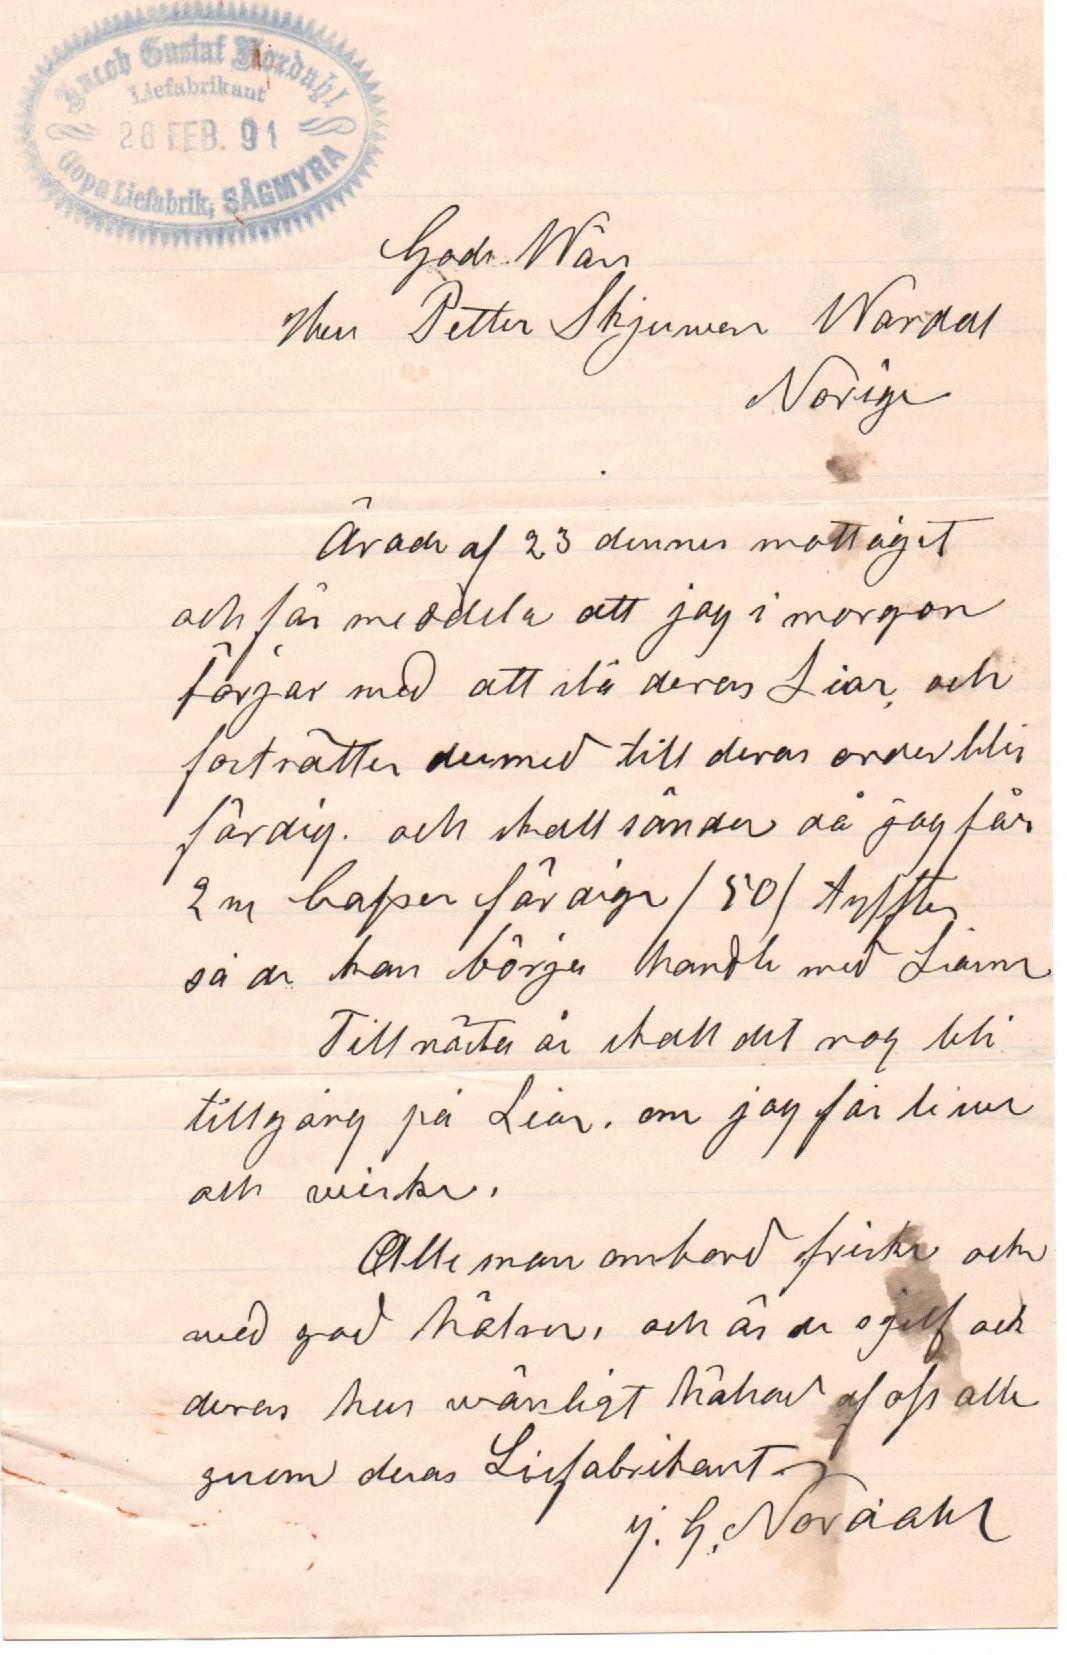 Jacob Gustaf Nordahl
Liefabrikant
26 FEB. 91
Gopa Liefabrik, SÅGMYRA
Gode Wän
Herr Petter Skjerwen Wardal
Norige
Ärade af 23 dennes mottaget
och får meddela att jag i morgon
börjar med att slå deras Liar, och
fortsätter dermed till deras order blir
färdig. och skall sända då jag får
2 ne kasser färdiga /50/ tyffter
så de kan börja handla med Liarne
Till nästa år skall det nog bli
tillgång på Liar. om jag får liwe
och wirke.
Alle man ombord friska och
med god hälsa, och är de sjelf och
deras hus wänligt hälsad af oss alla
genom deras Liefabrikant
J. G. Nordahl